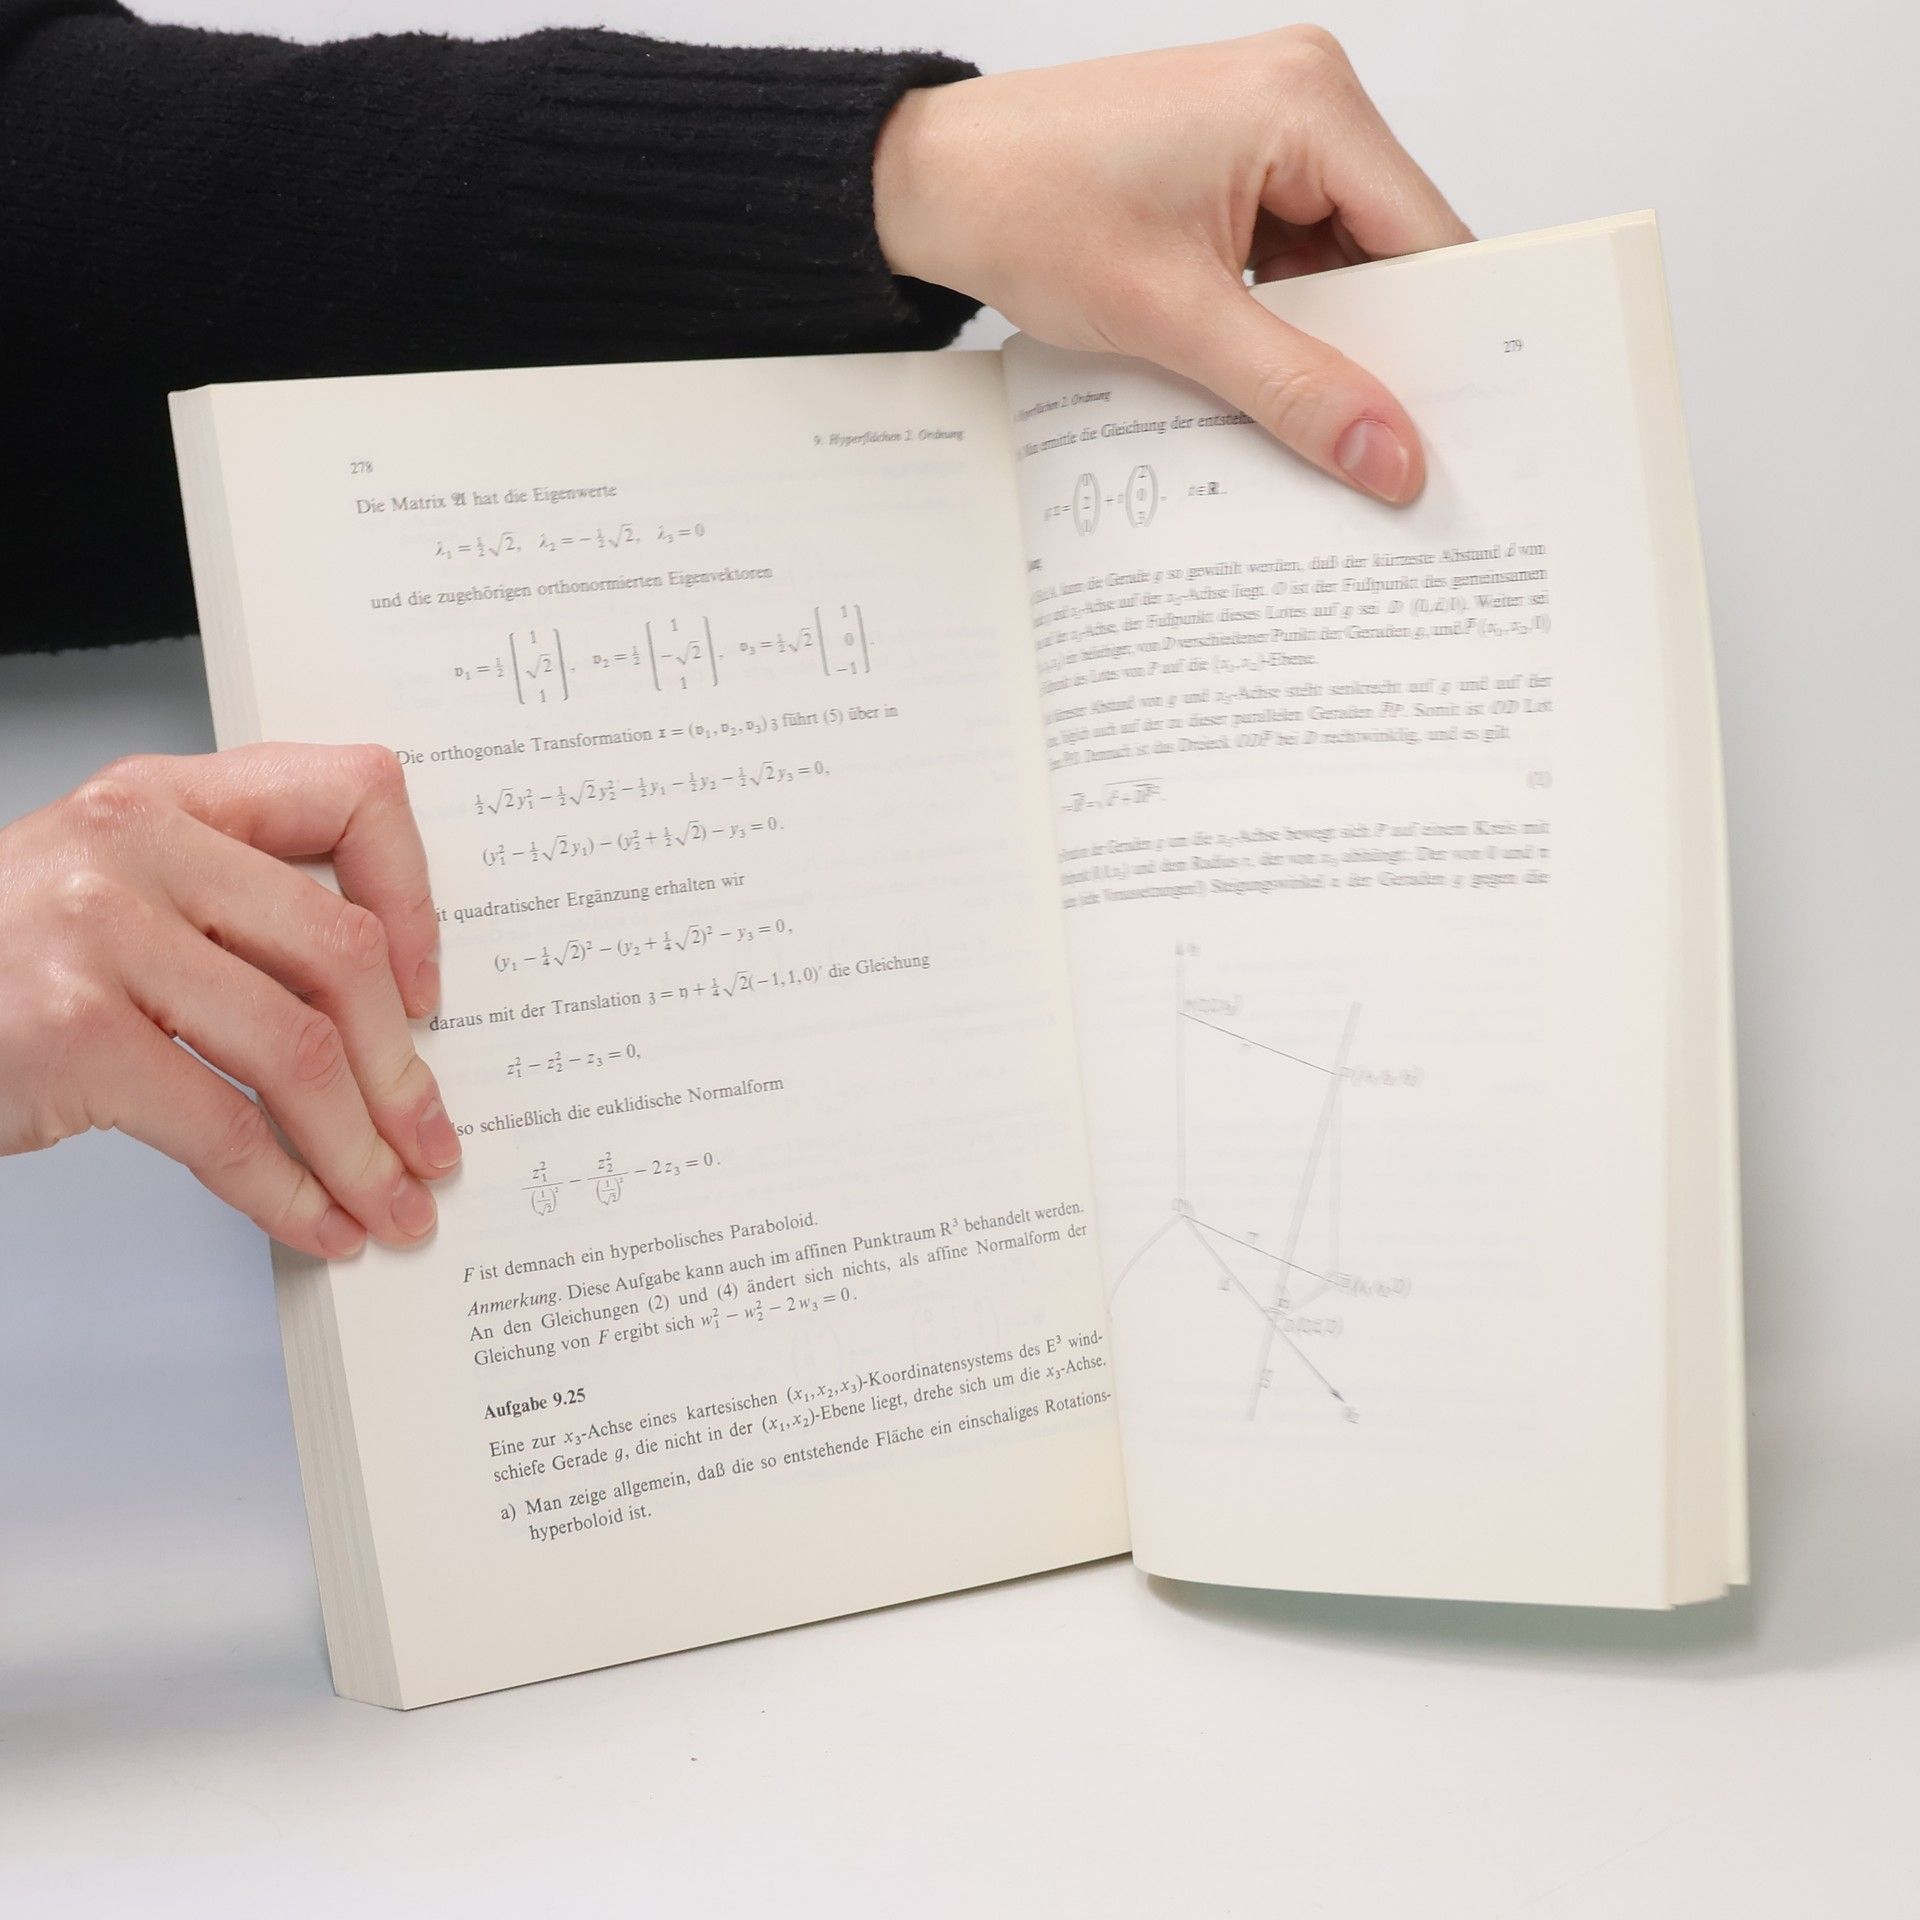 278
9. Hyperflächen 2. Ordnung
Die Matrix 𝔄 hat die Eigenwerte
λ₁ = ½√2, λ₂ = −½√2, λ₃ = 0
und die zugehörigen orthonormierten Eigenvektoren
𝔳₁ = ½ [1 √2 1], 𝔳₂ = ½ [1 −√2 1], 𝔳₃ = ½√2 [1 0 −1].
Die orthogonale Transformation 𝔵 = (𝔳₁, 𝔳₂, 𝔳₃) 𝔷 führt (5) über in
½√2y₁² − ½√2y₂² − ½y₁ − ½y₂ − ½√2y₃ = 0,
(y₁² − ½√2y₁) − (y₂² + ½√2) − y₃ = 0.
it quadratischer Ergänzung erhalten wir
(y₁ − ¼√2)² − (y₂ + ¼√2)² − y₃ = 0,
daraus mit der Translation 𝔷 = 𝔶 + ¼√2(−1, 1, 0)′ die Gleichung
z₁² − z₂² − z₃ = 0,
lso schließlich die euklidische Normalform
z₁²/(1/√2)² − z₂²/(1/√2)² − 2z₃ = 0.
F ist demnach ein hyperbolisches Paraboloid.
Anmerkung. Diese Aufgabe kann auch im affinen Punktraum R³ behandelt werden.
An den Gleichungen (2) und (4) ändert sich nichts, als affine Normalform der
Gleichung von F ergibt sich w₁² − w₂² − 2w₃ = 0.
Aufgabe 9.25
Eine zur x₃-Achse eines kartesischen (x₁, x₂, x₃)-Koordinatensystems des E³ wind-
schiefe Gerade g, die nicht in der (x₁, x₂)-Ebene liegt, drehe sich um die x₃-Achse.
a) Man zeige allgemein, daß die so entstehende Fläche ein einschaliges Rotations-
hyperboloid ist.
279
Hyperflächen 2. Ordnung
Man ermittle die Gleichung der entstehe
kann die Gerade g so gewählt werden, daß der kürzeste Abstand d von
und x₃-Achse auf der x₂-Achse liegt. O ist der Fußpunkt des gemeinsamen
auf der x₃-Achse, der Fußpunkt dieses Lotes auf g sei D (0,d,0). Weiter sei
beliebiger, von D verschiedener Punkt der Geraden g, und P̄ (x₁, x₂, 0)
des Lotes von P auf die (x₁, x₂)-Ebene.
Abstand von g und x₃-Achse steht senkrecht auf g und auf der
auch auf der zu dieser parallelen Geraden P̄P. Somit ist OD Lot
Demnach ist das Dreieck ODP̄ bei D rechtwinklig, und es gilt
der Geraden g um die x₃-Achse bewegt sich P auf einem Kreis mit
und dem Radius r, der von x₃ abhängt. Der von 0 und π
Steigungswinkel α der Geraden g gegen die